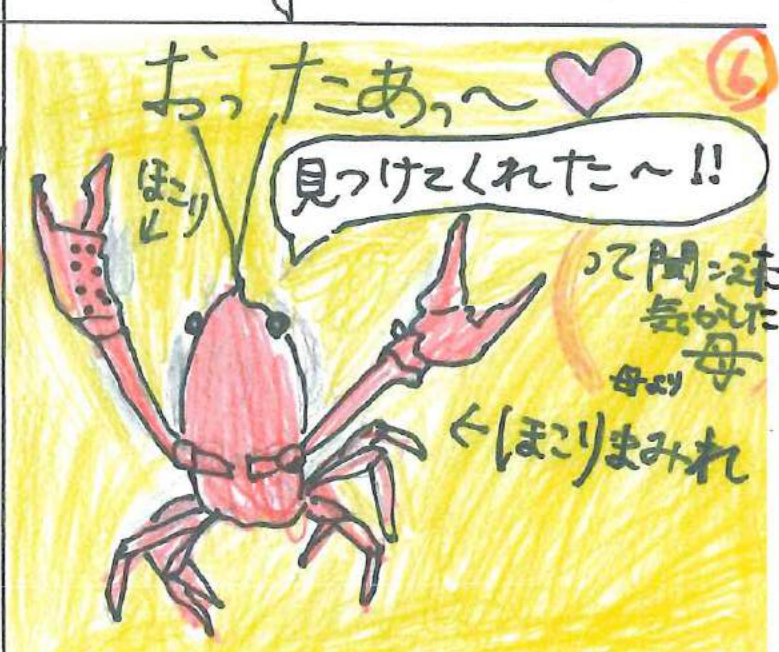 おったあっ～♡
⑥
見つけてくれた～!!
ほこり
って聞こえた
気がした
母
母より
←ほこりまみれ